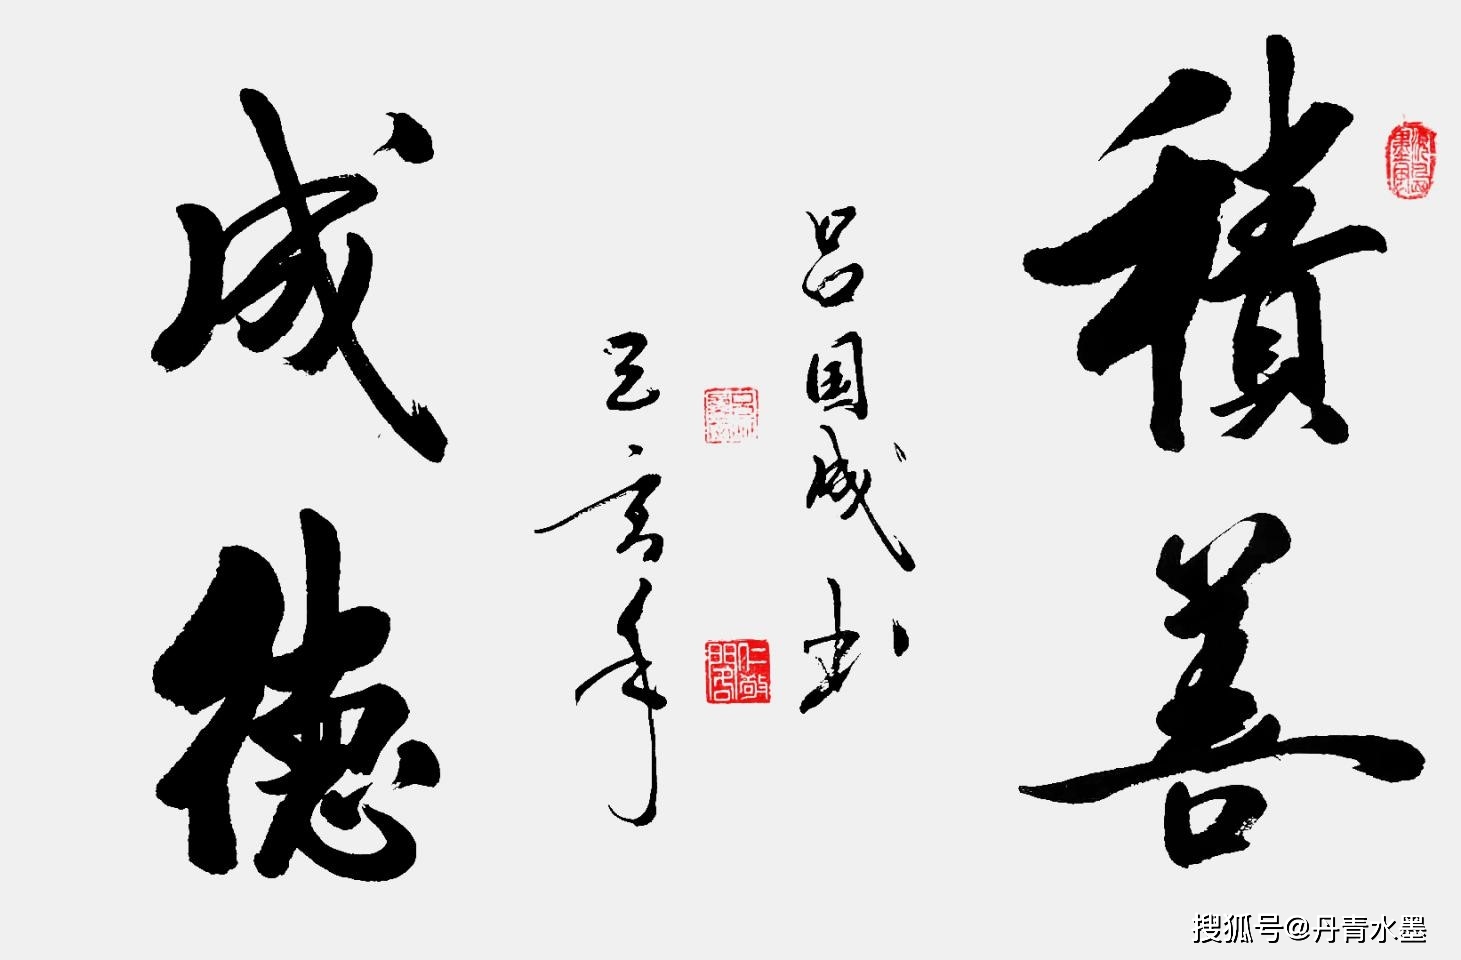 積善
吕国成书
己亥年
仁敬
成德
搜狐号@丹青水墨